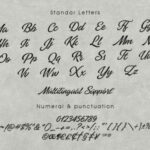 Standar Letters
Aa Bb Cc Dd Ee Ff Gg
Hh Ii Jj Kk Ll Mm Nn
Oo Pp Qq Rr Ss Tt Uu
Vv Ww Xx Yy Zz
Multilingual Support
Numeral & punctuation
0123456789